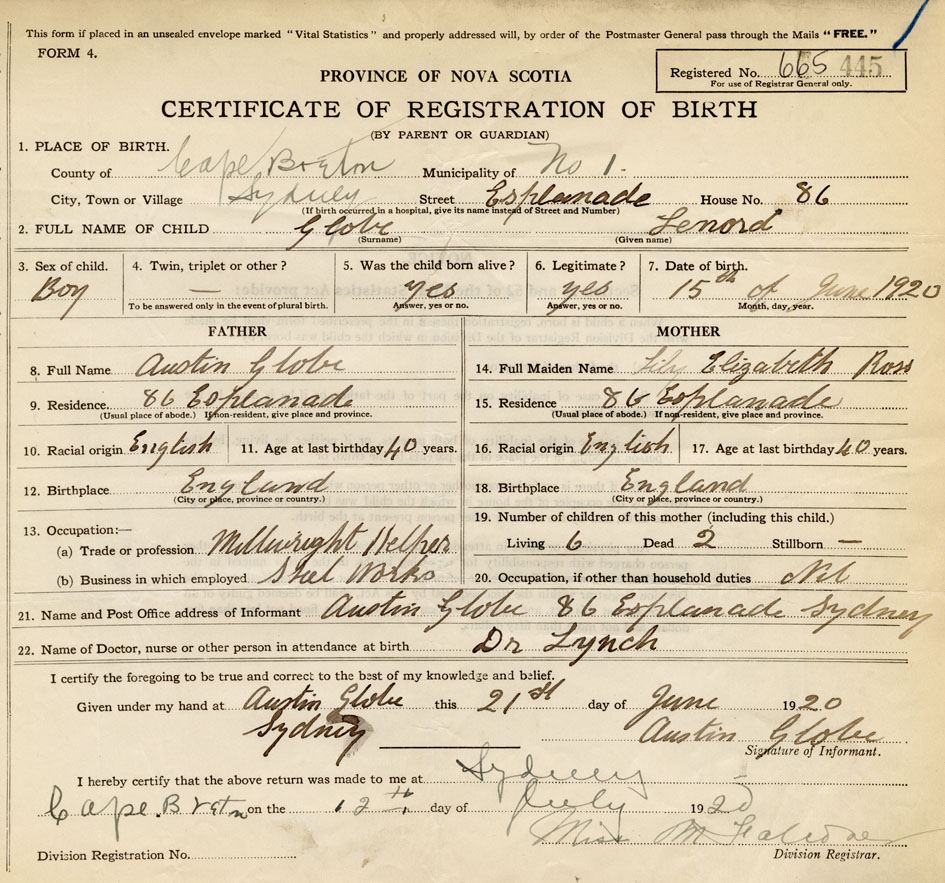 This form if placed in an unsealed envelope marked "Vital Statistics" and properly addressed will, by order of the Postmaster General pass through the Mails "FREE."
FORM 4.
Registered No. 665 445
For use of Registrar General only.
PROVINCE OF NOVA SCOTIA
CERTIFICATE OF REGISTRATION OF BIRTH
(BY PARENT OR GUARDIAN)
1. PLACE OF BIRTH.
County of Cape Breton Municipality of No 1.
City, Town or Village Sydney Street Esplanade House No. 86
(If birth occurred in a hospital, give its name instead of Street and Number)
2. FULL NAME OF CHILD Globe Lenord
(Surname) (Given name)
3. Sex of child. 4. Twin, triplet or other? 5. Was the child born alive? 6. Legitimate? 7. Date of birth.
Boy — yes yes 15th of June 1920
To be answered only in the event of plural birth. Answer, yes or no. Answer, yes or no. Month, day, year.
FATHER
8. Full Name Austin Globe
9. Residence. 86 Esplanade
(Usual place of abode.) If non-resident, give place and province.
10. Racial origin English 11. Age at last birthday 40 years.
12. Birthplace England
(City or place, province or country.)
13. Occupation:—
(a) Trade or profession Millwright Helper
(b) Business in which employed Steel Works
MOTHER
14. Full Maiden Name Lily Elizabeth Ross
15. Residence 86 Esplanade
(Usual place of abode.) If non-resident, give place and province.
16. Racial origin English 17. Age at last birthday 40 years.
18. Birthplace England
(City or place, province or country.)
19. Number of children of this mother (including this child.)
Living 6 Dead 2 Stillborn —
20. Occupation, if other than household duties Nil
21. Name and Post Office address of Informant Austin Globe 86 Esplanade Sydney
22. Name of Doctor, nurse or other person in attendance at birth Dr Lynch
I certify the foregoing to be true and correct to the best of my knowledge and belief.
Given under my hand at Austin Globe this 21st day of June 1920
Sydney Austin Globe
Signature of Informant.
I hereby certify that the above return was made to me at Sydney
Cape Breton on the 12th day of July 1920
Miss M
Division Registration No. Division Registrar.